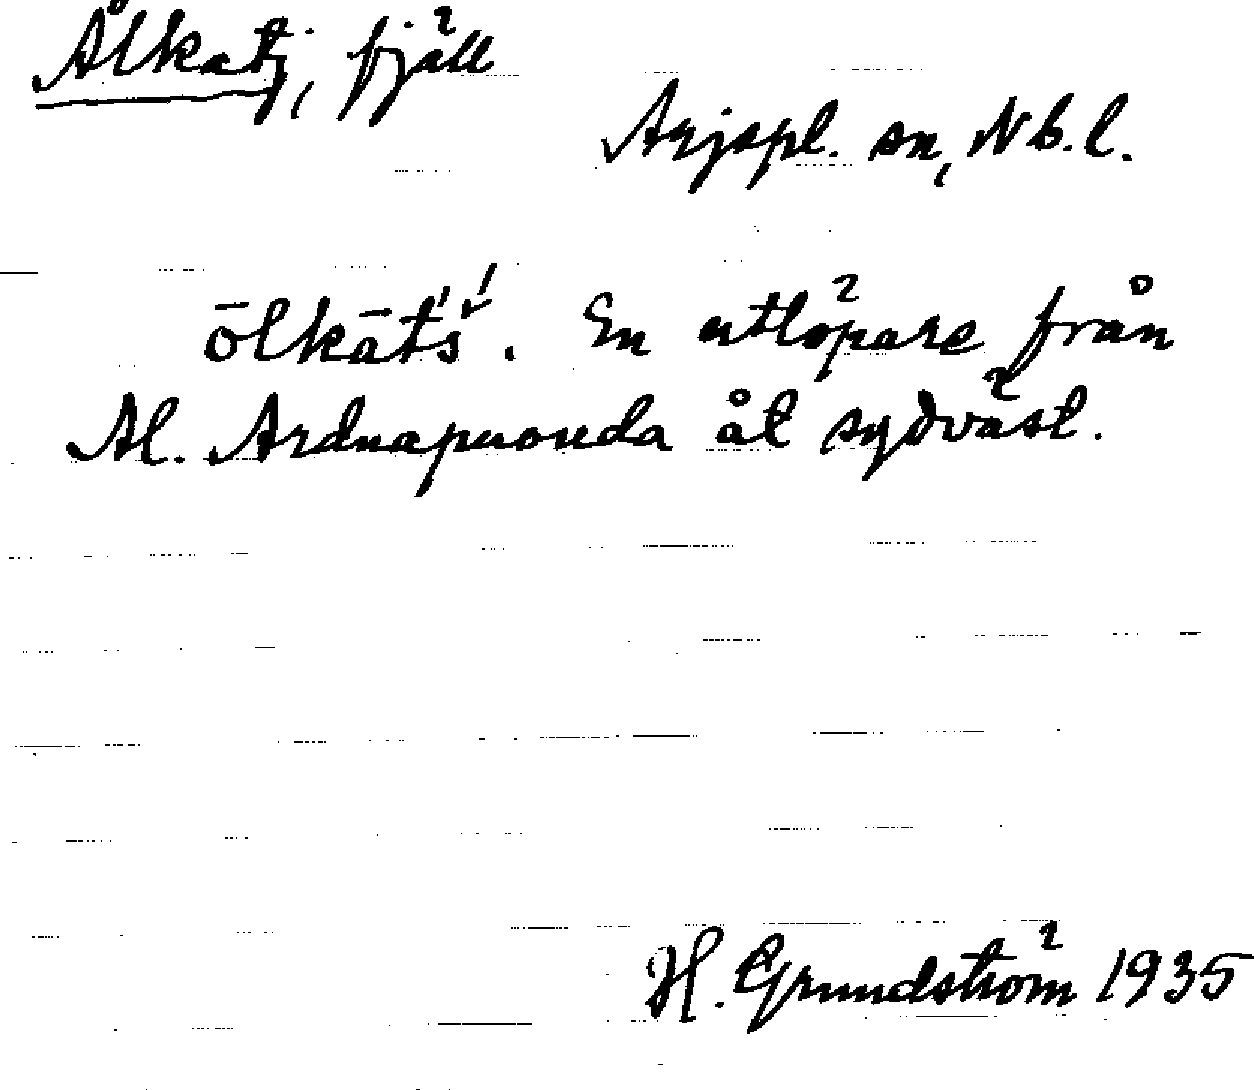 Ålkatj, fjäll
Arjepl. sn, Nb.l.
ōlkāt́š́. En utlöpare från
Al. Ardnapuouda åt sydväst.
H. Grundström 1935